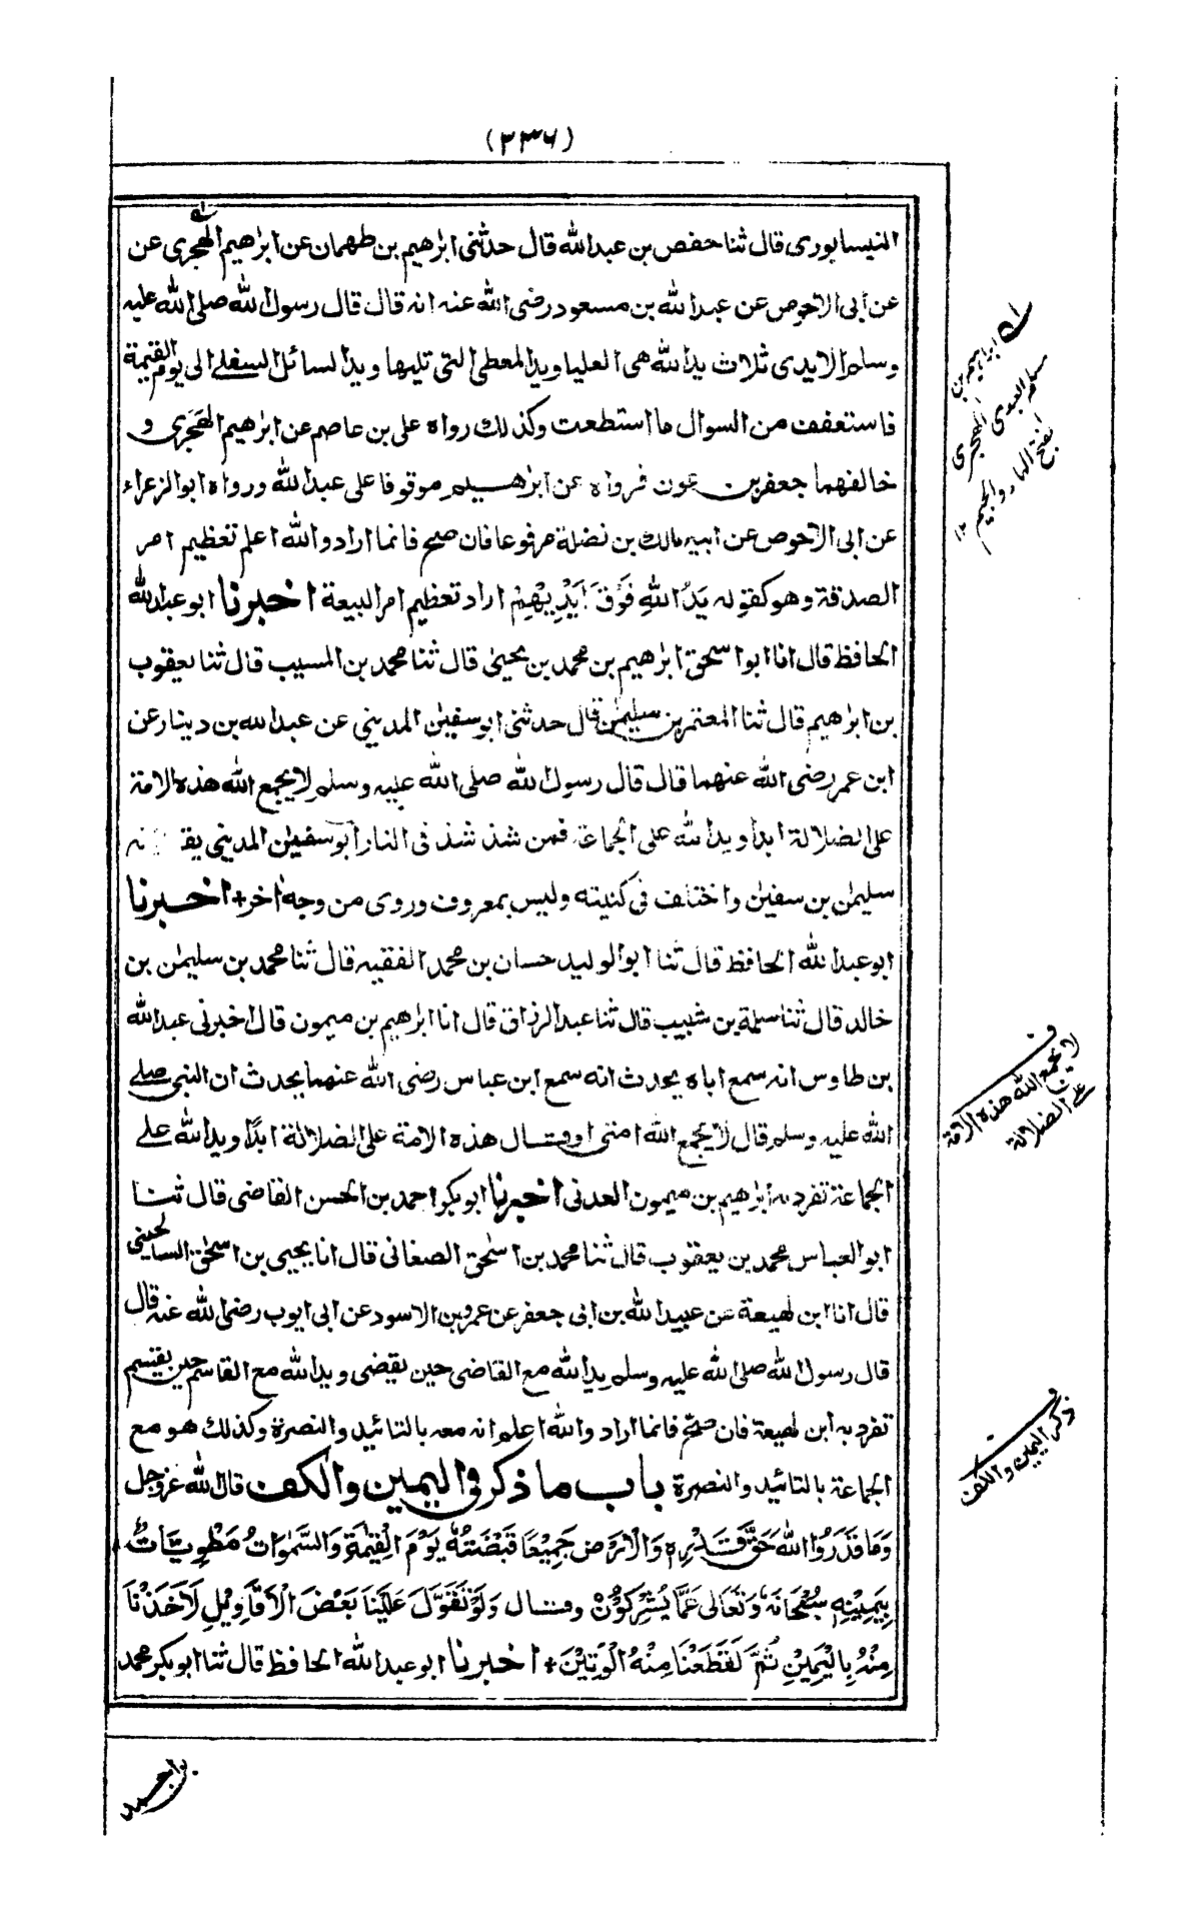 (٢٣٦)
النيسابورى قال ثنا حفص بن عبد الله قال حدثنى ابرٰهيم بن طهمان عن ابرٰهيم الهجرى عن
عن ابى الاحوص عن عبد الله بن مسعود رضى الله عنه انه قال قال رسول الله صلى الله عليه
وسلم الايدى ثلاث يد الله هى العليا ويد المعطى التى تليها ويد السائل السفلے الى يوم القيمة
فاستعفف من السوال ما استطعت وكذلك رواه على بن عاصم عن ابرٰهيم الهَجَرى و
خالفهما جعفر بن عون فرواه عن ابرٰهيم موقوفا على عبد الله ورواه ابو الزعراء
عن ابى الاحوص عن ابيه مالك بن نضلة مرفوعا فان صح فانما اراد والله اعلم تعظيم امر
الصدقة وهو كقوله يَدُ اللهِ فَوْقَ اَيْدِيْهِمْ اراد تعظيم امر البيعة اخبرنا ابو عبد الله
الحافظ قال انا ابو اسحٰق ابرٰهيم بن محمد بن يحيىٰ قال ثنا محمد بن المسيب قال ثنا يعقوب
بن ابرٰهيم قال ثنا المعتمر بن سليمٰن قال حدثنى ابو سفيٰن المدينى عن عبد الله بن دينار عن
ابن عمر رضى الله عنهما قال قال رسول الله صلى الله عليه وسلم لا يجمع الله هذه الامة
على الضلالة ابدا ويد الله على الجماعة فمن شذ شذ فى النار ابو سفيٰن المدينى
سليمٰن بن سفيٰن واختلف فى كنيته وليس بمعروف وروى من وجه اٰخر + اخبرنا
ابو عبد الله الحافظ قال ثنا ابو الوليد حسان بن محمد الفقيه قال ثنا محمد بن سليمٰن بن
خالد قال ثنا سلمة بن شبيب قال ثنا عبد الرزاق قال انا ابرٰهيم بن ميمون قال اخبرنى عبد الله
بن طاوس انه سمع اباه يحدث انه سمع ابن عباس رضى الله عنهما يحدث ان النبى صلے
الله عليه وسلم قال لا يجمع الله امتى او قال هذه الامة على الضلالة ابدًا ويد الله علے
الجماعة تفرد به ابرٰهيم بن ميمون العدنى اخبرنا ابو بكر احمد بن الحسن القاضى قال ثنا
ابو العباس محمد بن يعقوب قال ثنا محمد بن اسحٰق الصغانى قال انا يحيى بن اسحٰق السالحينى
قال انا ابن لهيعة عن عبيد الله بن ابى جعفر عن عمرو بن الاسود عن ابى ايوب رضى الله عنه قال
قال رسول الله صلى الله عليه وسلم يد الله مع القاضى حين يقضى ويد الله مع القاسم حين يقسم
تفرد به ابن لهيعة فان صح فانما اراد والله اعلم انه معه بالتائيد والنصرة وكذلك هو مع
الجماعة بالتائيد والنصرة باب ما ذكر فى اليمين والكف قال الله عز وجل
وَمَا قَدَرُوا اللهَ حَقَّ قَدْرِهٖ وَالْاَرْضُ جَمِيْعًا قَبْضَتُهٗ يَوْمَ الْقِيٰمَةِ وَالسَّمٰوَاتُ مَطْوِيَّاتٌ
بِيَمِيْنِهٖ سُبْحَانَهٗ وَتَعَالٰى عَمَّا يُشْرِكُوْنَ وقال وَلَوْ تَقَوَّلَ عَلَيْنَا بَعْضَ الْاَقَاوِيْلِ لَاَخَذْنَا
مِنْهُ بِالْيَمِيْنِ ثُمَّ لَقَطَعْنَا مِنْهُ الْوَتِيْنَ + اخبرنا ابو عبد الله الحافظ قال ثنا ابو بكر محمد
ابراهيم بن
مسلم العبدى
الهجرى
بفتح الهاء والجيم ١٢
لا يجمع الله هذه الامة
علے الضلالة
ذكر اليمين والكف
بن احمد